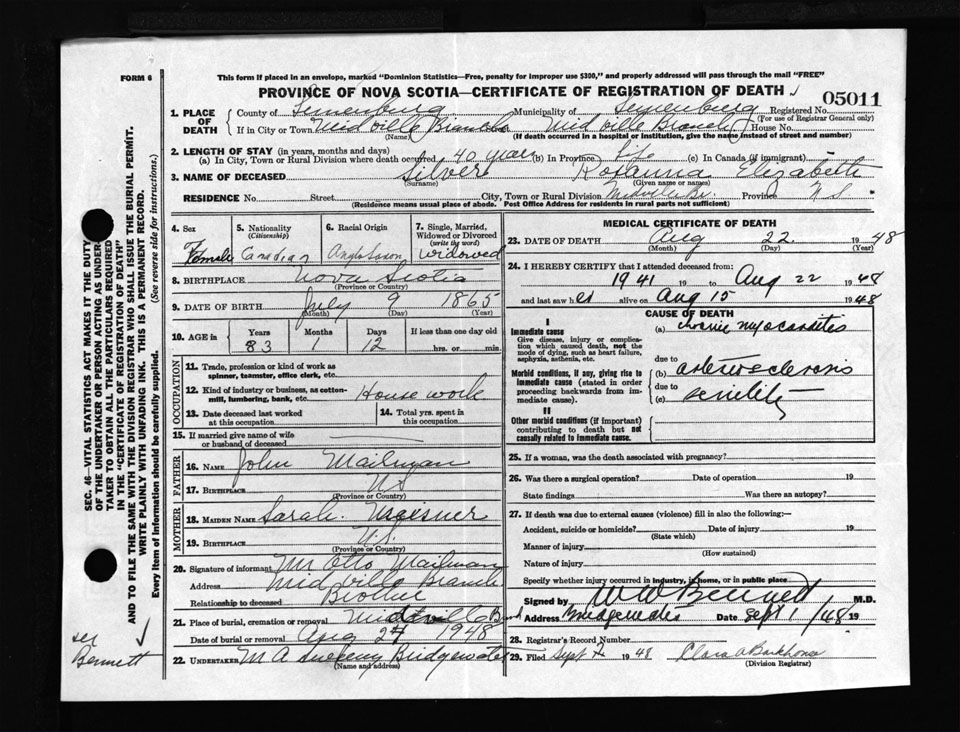 FORM 6
This form if placed in an envelope, marked "Dominion Statistics—Free, penalty for improper use $300," and properly addressed will pass through the mail "FREE"
PROVINCE OF NOVA SCOTIA—CERTIFICATE OF REGISTRATION OF DEATH
05011
1. PLACE OF DEATH
County of Lunenburg Municipality of Lunenburg Registered No.
(For use of Registrar General only)
If in City or Town Midville Branch Midville Branch House No.
(Name) (If death occurred in a hospital or institution, give the name instead of street and number)
2. LENGTH OF STAY (in years, months and days)
(a) In City, Town or Rural Division where death occurred 40 years (b) In Province Life (c) In Canada (if immigrant)
3. NAME OF DECEASED Silver Rosanna Elizabeth
(Surname) (Given name or names)
RESIDENCE No. Street City, Town or Rural Division Midville Br. Province N S
(Residence means usual place of abode. Post Office Address for residents in rural parts not sufficient)
4. Sex
Female
5. Nationality
(Citizenship)
Canadian
6. Racial Origin
Anglo Saxon
7. Single, Married, Widowed or Divorced
(write the word)
Widowed
8. BIRTHPLACE Nova Scotia
(Province or Country)
9. DATE OF BIRTH July 9 1865
(Month) (Day) (Year)
10. AGE in
Years Months Days If less than one day old
83 1 12 hrs. or min.
OCCUPATION
11. Trade, profession or kind of work as
spinner, teamster, office clerk, etc.
12. Kind of industry or business, as cotton-
mill, lumbering, bank, etc. House work
13. Date deceased last worked
at this occupation
14. Total yrs. spent in
this occupation
15. If married give name of wife
or husband of deceased
FATHER
16. NAME John Mailman
17. BIRTHPLACE N S
(Province or Country)
MOTHER
18. MAIDEN NAME Sarah
19. BIRTHPLACE N.S.
(Province or Country)
20. Signature of informant Mr Otto Mailman
Address Midville Branch
Relationship to deceased Brother
21. Place of burial, cremation or removal Midville B
Date of burial or removal Aug 24 1948
22. UNDERTAKER M A Sweeny Bridgewater
(Name and address)
MEDICAL CERTIFICATE OF DEATH
23. DATE OF DEATH Aug 22 1948
(Month) (Day) (Year)
24. I HEREBY CERTIFY that I attended deceased from:
1941 19 to Aug 22 1948
and last saw her alive on Aug 15 1948
CAUSE OF DEATH
I
Immediate cause
Give disease, injury or complica-
tion which caused death, not the
mode of dying, such as heart failure,
asphyxia, asthenia, etc.
(a) chronic myocarditis
due to
Morbid conditions, if any, giving rise to
immediate cause (stated in order
proceeding backwards from im-
mediate cause).
(b) arteriosclerosis
due to
(c) senility
II
Other morbid conditions (if important)
contributing to death but not
causally related to immediate cause.
25. If a woman, was the death associated with pregnancy?
26. Was there a surgical operation? Date of operation 19
State findings Was there an autopsy?
27. If death was due to external causes (violence) fill in also the following:—
Accident, suicide or homicide? Date of injury 19
(State which)
Manner of injury
(How sustained)
Nature of injury
Specify whether injury occurred in industry, in home, or in public place
Signed by W W Bennett M.D.
Bridgewater Date Sept 1/48 19
28. Registrar's Record Number
29. Filed Sept 1948 Clara O Barkhouse
(Division Registrar)
SEC. 46—VITAL STATISTICS ACT MAKES IT THE DUTY
OF THE UNDERTAKER OR PERSON ACTING AS UNDER-
TAKER TO OBTAIN ALL THE PARTICULARS REQUIRED
IN THE "CERTIFICATE OF REGISTRATION OF DEATH"
AND TO FILE THE SAME WITH THE DIVISION REGISTRAR WHO SHALL ISSUE THE BURIAL PERMIT.
WRITE PLAINLY WITH UNFADING INK. THIS IS A PERMANENT RECORD.
Every item of information should be carefully supplied. (See reverse side for instructions.)
Bennett